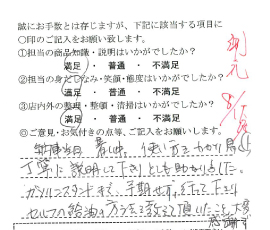 誠にお手数とは存じますが、下記に該当する項目に
〇印のご記入をお願い致します。
①担当の商品知識・説明はいかがでしたか?
満足 ・ 普通 ・ 不満足
②担当の身だしなみ・笑顔・態度はいかがでしたか?
満足 ・ 普通 ・ 不満足
③店内外の整理・整頓・清掃はいかがでしたか?
満足 ・ 普通 ・ 不満足
◎ご意見・お気付きの点等、ご記入をお願いします。
納車当日 暑い中 使い方をわかり易く
丁寧に説明して下さりとても助かりました。
ガソリンスタンドまで、予期せず、行って下さり
セルフの給油の方法を教えて頂いたこと、大変
感謝す